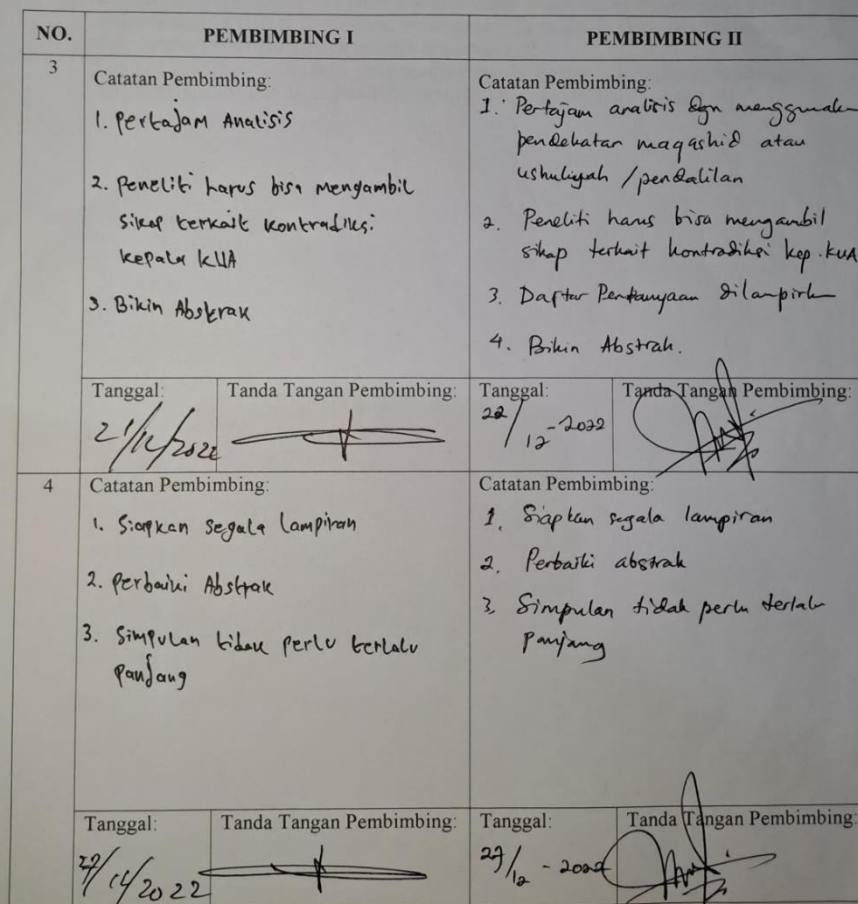 NO.
PEMBIMBING I
PEMBIMBING II
3
Catatan Pembimbing:
1. Pertajam Analisis
2. Peneliti harus bisa Mengambil
Sikap terkait kontradiksi
kepala KUA
3. Bikin Abstrak
Catatan Pembimbing:
1. Pertajam analisis dgn menggunak
pendekatan maqashid atau
ushuliyah / pendalilan
2. Peneliti harus bisa mengambil
sikap terkait kontradiksi kep. KUA
3. Daftar Pertanyaan dilampirk
4. Bikin Abstrak.
Tanggal:
21/12/2022
Tanda Tangan Pembimbing:
Tanggal:
22/12-2022
Tanda Tangan Pembimbing:
4
Catatan Pembimbing:
1. Siapkan segala Lampiran
2. Perbaiki Abstrak
3. Simpulan tidak perlu terlalu
panjang
Catatan Pembimbing:
1. Siapkan segala lampiran
2. Perbaiki abstrak
3. Simpulan tidak perlu terlalu
panjang
Tanggal:
27/12/2022
Tanda Tangan Pembimbing:
Tanggal:
27/12 - 2022
Tanda Tangan Pembimbing: